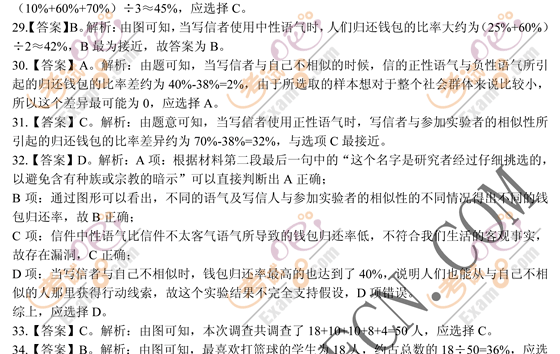 (10%+60%+70%)÷3≈45%，应选择 C。
29.【答案】B。解析：由图可知，当写信者使用中性语气时，人们归还钱包的比率大约为(25%+60%)
÷2≈42%，B 最为接近，故答案为 B。
30.【答案】A。解析：由题可知，当写信者与自己不相似的时候，信的正性语气与负性语气所引
起的归还钱包的比率差约为 40%-38%=2%，由于所选取的样本想对于整个社会群体来说比较小，
所以这个差异最可能为 0，应选择 A。
31.【答案】C。解析：由题意可知，当写信者使用正性语气时，写信者与参加实验者的相似性所
引起的归还钱包的比率差异约为 70%-38%=32%，与选项 C 最接近。
32.【答案】D。解析：A 项：根据材料第二段最后一句中的“这个名字是研究者经过仔细挑选的，
以避免含有种族或宗教的暗示”可以直接判断出 A 正确；
B 项：通过图形可以看出，不同的语气及写信人与参加实验者的相似性的不同情况得出不同的钱
包归还率，故 B 正确；
C 项：信件中性语气比信件不太客气语气所导致的钱包归还率低，不符合我们生活的客观事实，
故存在漏洞，C 正确；
D 项：当写信者与自己不相似时，钱包归还率最高的也达到了 40%，说明人们也能从与自己不相
似的人那里获得行动线索，故这个实验结果不完全支持假设，D 项错误。
综上，应选择 D。
33.【答案】C。解析：由图可知，本次调查共调查了 18+10+10+8+4=50 人，应选择 C。
34.【答案】B。解析：由图可知，最喜欢打篮球的学生为 18 人，约占总数的 18÷50=36%，应选